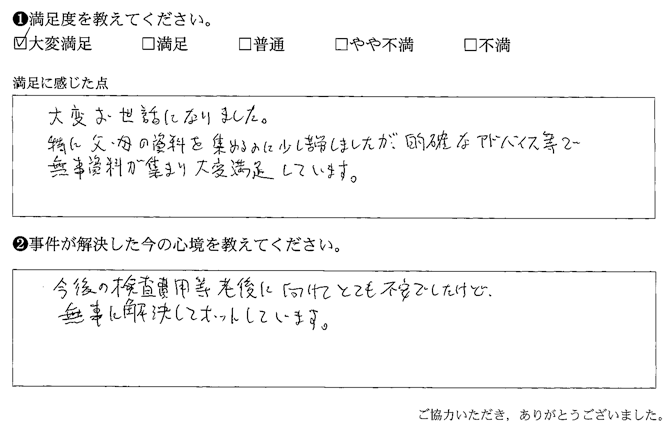 ❶満足度を教えてください。
☑大変満足 □満足 □普通 □やや不満 □不満
満足に感じた点
大変お世話になりました。
特に父・母の資料を集めるのに少し苦労しましたが、的確なアドバイス等で
無事資料が集まり大変満足しています。
❷事件が解決した今の心境を教えてください。
今後の検査費用等老後に向けてとても不安でしたけど、
無事に解決してホットしています。
ご協力いただき，ありがとうございました。